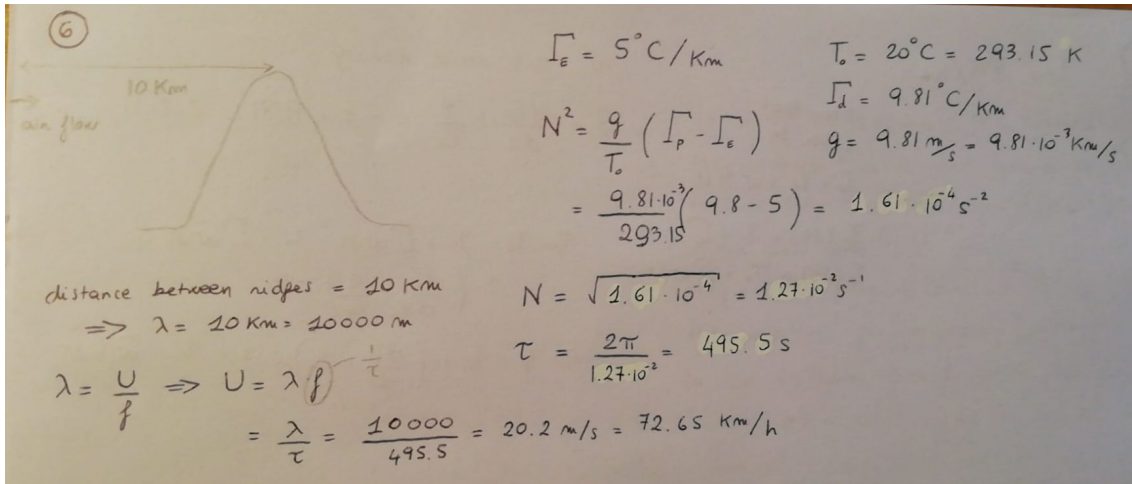 6
10 Km
air flow
Γε = 5°C/Km
T₀ = 20°C = 293.15 K
Γd = 9.81°C/Km
g = 9.81 m/s = 9.81·10⁻³ Km/s
N² = g/T₀ (Γp - Γε)
= 9.81·10⁻³/293.15 (9.8 - 5) = 1.61 · 10⁻⁴ s⁻²
distance between ridges = 10 Km
=> λ = 10 Km = 10000 m
N = √1.61 · 10⁻⁴ = 1.27·10⁻² s⁻¹
τ = 2π/1.27·10⁻² = 495.5 s
λ = U/f => U = λ f 1/τ
= λ/τ = 10000/495.5 = 20.2 m/s = 72.65 Km/h